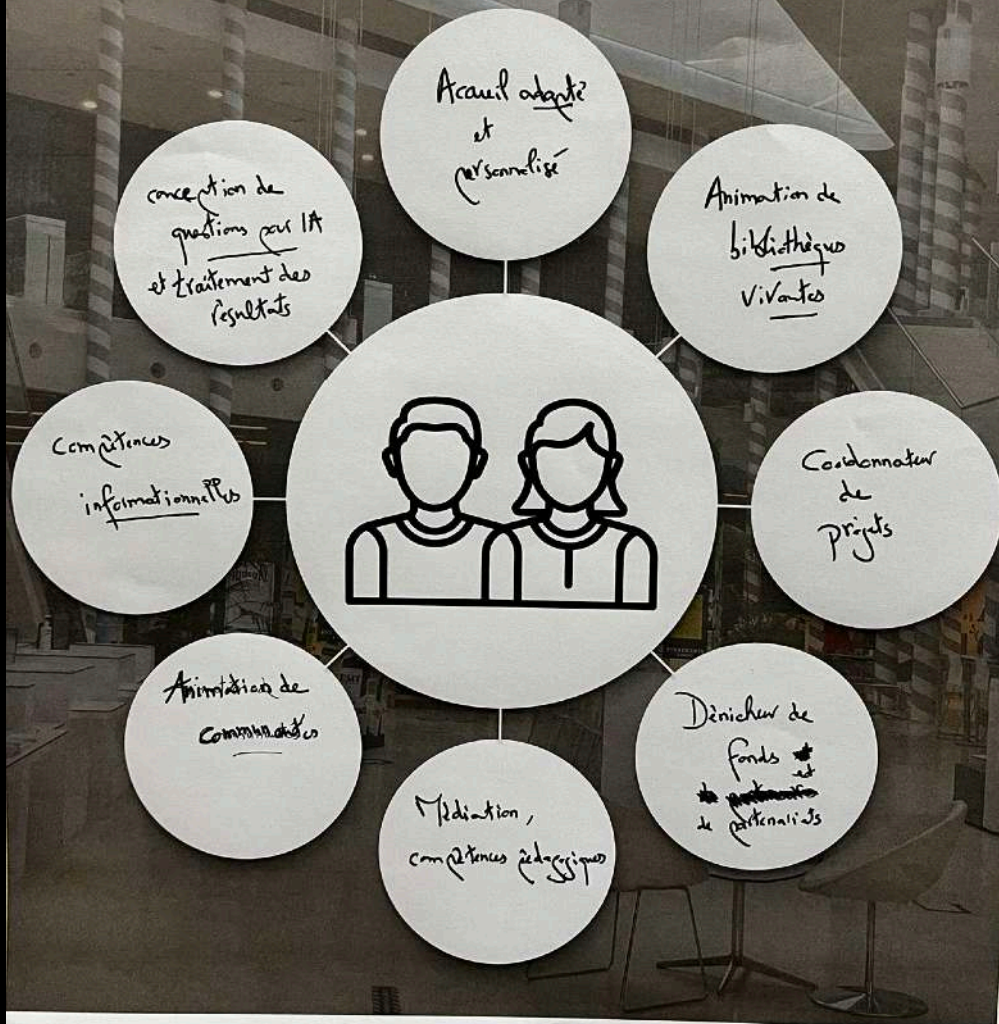 Accueil adapté
et
personnalisé
Animation de
bibliothèques
vivantes
Coordonnateur
de
projets
Dénicheur de
fonds
et
de partenariats
Médiation,
compétences pédagogiques
Animation de
communautés
Compétences
informationnelles
conception de
questions pour IA
et traitement des
résultats